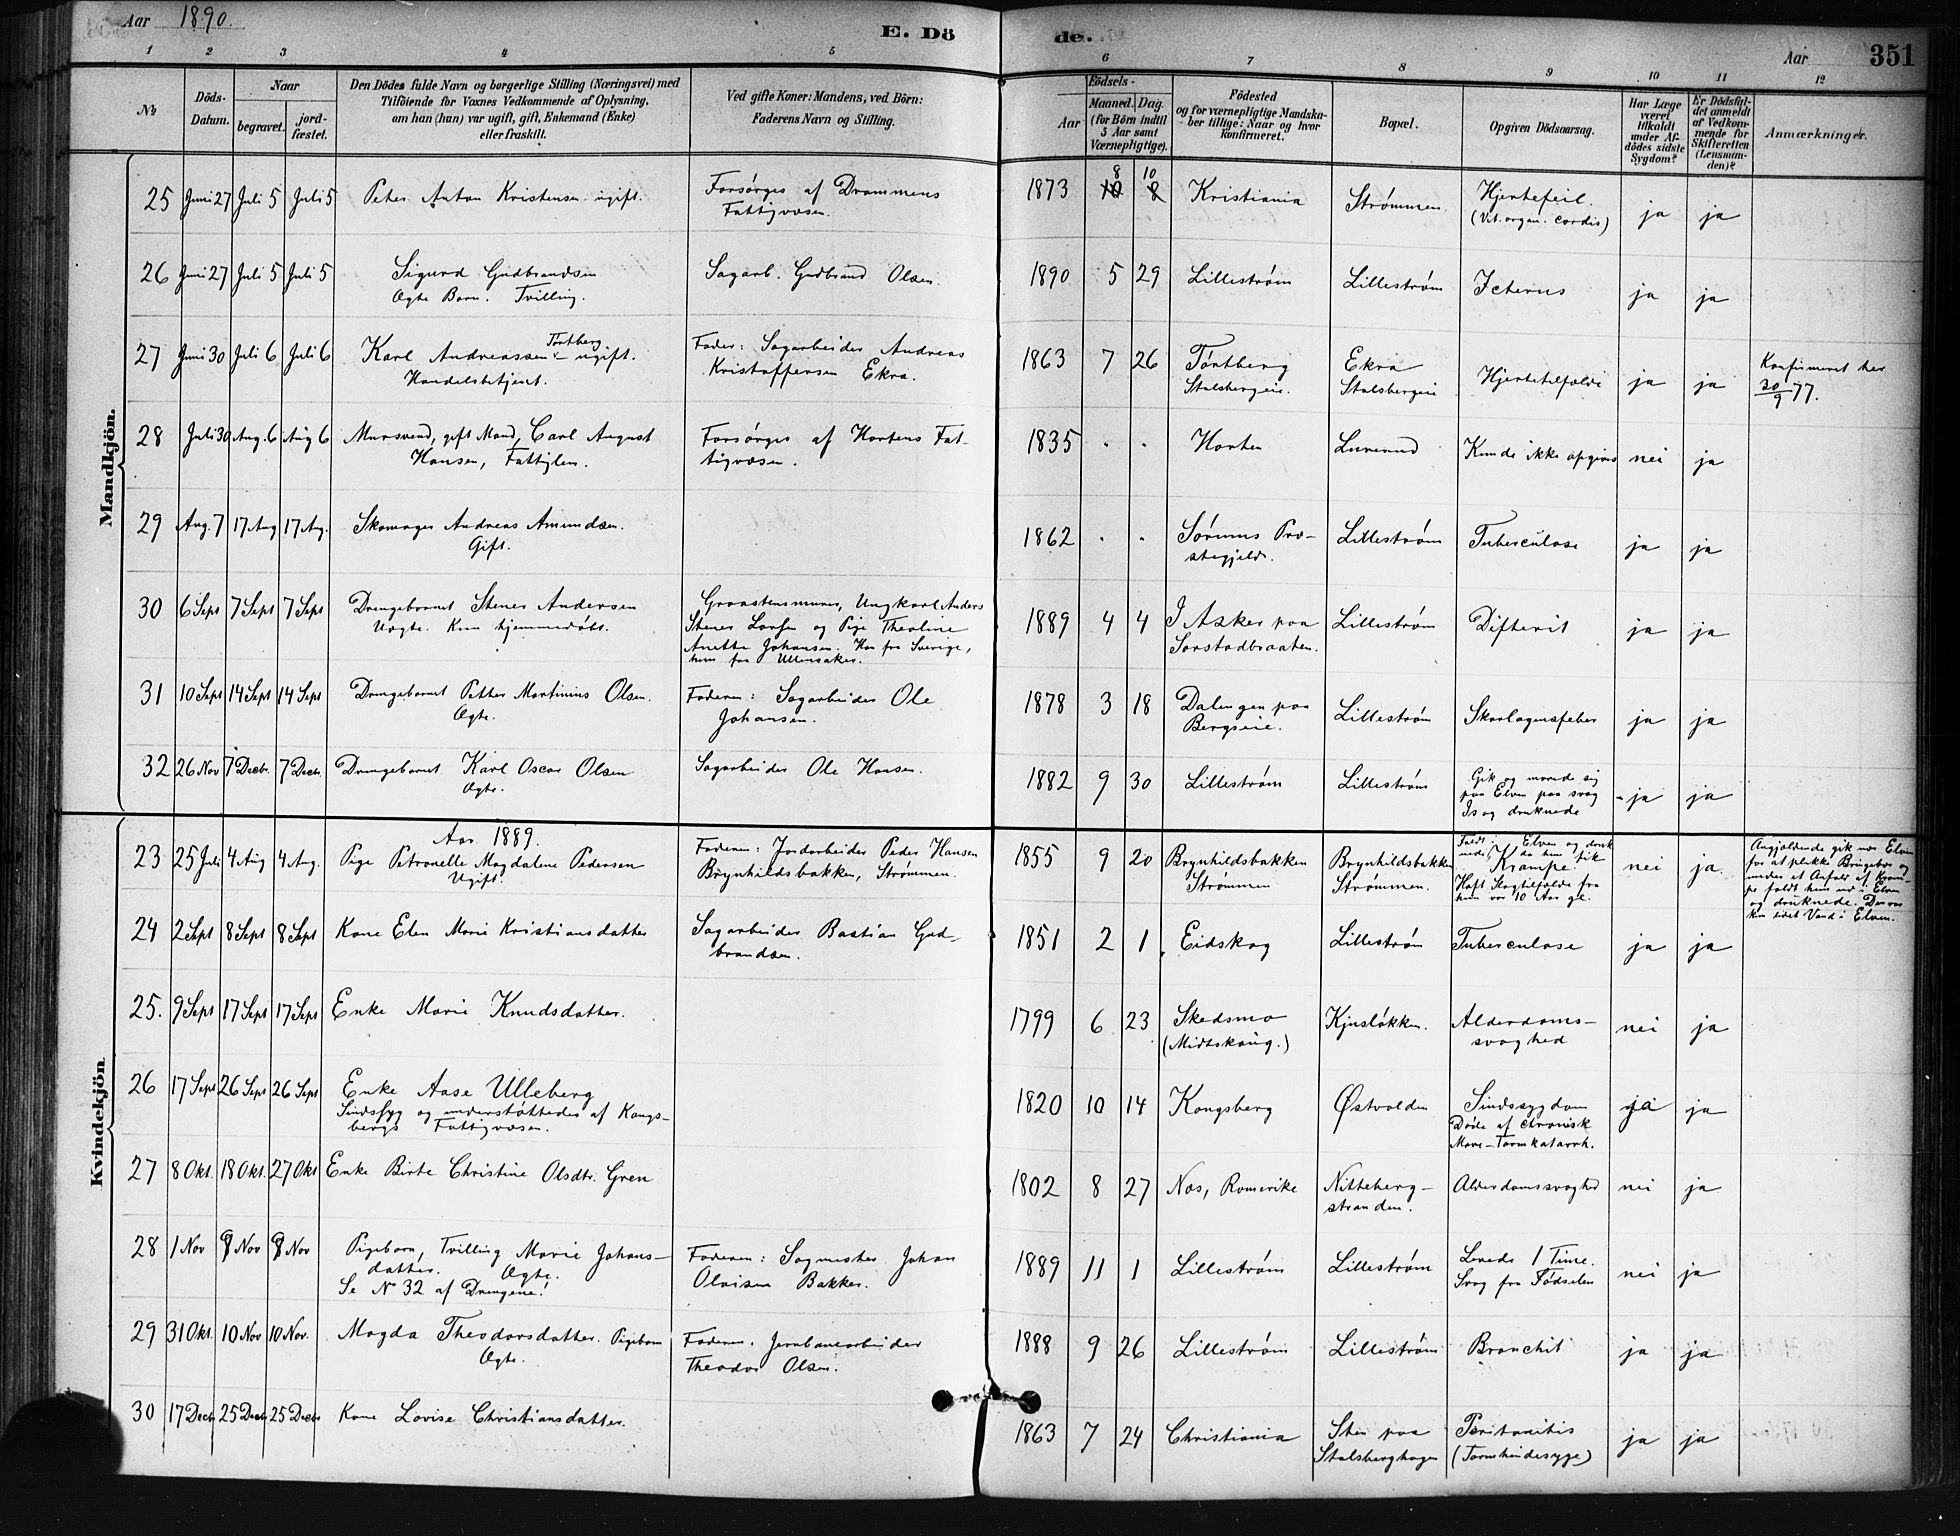 Aar 1890.
E. Dö
de.
Aar
351
1 2 3 4 5 6 7 8 9 10 11 12
No
Döds-
Datum.
Naar
begravet.
jord-
fæstet.
Den Dödes fulde Navn og borgerlige Stilling (Næringsvei) med
Tilföiende for Voxnes Vedkommende af Oplysning,
om han (hun) var ugift, gift, Enkemand (Enke)
eller fraskilt.
Ved gifte Koner: Mandens, ved Börn:
Faderens Navn og Stilling.
Födsels-
Aar
Maaned.
Dag.
(for Börn indtil
5 Aar samt
Værnepligtige).
Födested
og for værnepligtige Mandska-
ber tillige: Naar og hvor
konfirmeret.
Bopæl.
Opgiven Dödsaarsag.
Har Læge
været
tilkaldt
under Af-
dödes sidste
Sygdom?
Er Dödsfal-
det anmeldt
af Vedkom-
mende for
Skifteretten
(Lensman-
den)?
Anmærkninger.
Mandkjön.
25 Juni 27 Juli 5 Juli 5 Peter Anton Kristensen ugift. Forsørges af Drammens
Fattigvæsen.
1873 8 10 Kristiania Strømmen Hjertefeil.
(Vit. organ. cordis) ja ja
26 Juni 27 Juli 5 Juli 5 Sigurd Gudbrandsen
Ægte Barn. Tvilling.
Sagarb. Gudbrand Olsen.
1890 5 29 Lillestrøm Lillestrøm Icterus ja ja
27 Juni 30 Juli 6 Juli 6 Karl Andreassen Tørtberg ugift.
Handelsbetjent.
Fader: Sagarbeider Andreas
Kristoffersen Ekra.
1863 7 26 Tørtberg
Stalsbergeie.
Ekra
Stalsbergeie
Hjertetilfælde ja ja
Konfirmeret her
30/9 77.
28 Juli 30 Aug. 6 Aug 6 Mursvend, gift Mand, Carl August
Hansen, Fattiglem.
Forsørges af Hortens Fat-
tigvæsen.
1835 . . Horten Lurerud Kunde ikke opgives nei ja
29 Aug. 7 17 Aug 17 Aug. Skomager Andreas Amundsen.
Gift.
1862 . . Sørums Præ-
stegjeld.
Lillestrøm Tuberculose ja ja
30 6 Sept 7 Sept 7 Sept Drengebarnet Stener Andersen
Uægte. Kun hjemmedøbt.
Graastensmurer, Ungkarl Anders
Stener Larsen og Pige Theoline
Anette Johansen. Han fra Sverige,
hun fra Ullensaker.
1889 4 4 I Asker paa
Sorstadbraaten.
Lillestrøm Difterit ja ja
31 10 Sept 14 Sept 14 Sept Drengebarnet Petter Martinius Olsen.
Ægte.
Faderen: Sagarbeider Ole
Johansen.
1878 3 18 Dalengen paa
Bergseie.
Lillestrøm Skarlagensfeber ja ja
32 26 Nov 7 Decbr. 7 Decbr. Drengebarnet Karl Oscar Olsen
Ægte.
Sagarbeider Ole Hansen.
1882 9 30 Lillestrøm Lillestrøm Gik og morede sig
paa Elven paa svag
Is og druknede
ja ja
Kvindekjön
Aar 1889.
23 25 Juli 4 Aug 4 Aug. Pige Petronelle Magdalene Pedersen
Ugift.
Faderen: Jordarbeider Peder Hansen
Brynhildsbakken, Strømmen.
1855 9 20 Brynhildsbakken
Strømmen
Brynhildsbakken
Strømmen.
Faldt i Elven og druk
nede, da hun fik
Krampe.
Haft Slagtilfælde fra
hun var 10 Aar gl.
nei ja
Angjældende gik ned Elven
for at plukke Bringebær og
under et Anfald af Kram-
pe faldt hun ud i Elven
og druknede. Der var
kun lidet Vand i Elven.
24 2 Sept 8 Sept 8 Sept Kone Elen Marie Kristiansdatter Sagarbeider Bastian Gud-
brandsen.
1851 2 1 Eidskog Lillestrøm Tuberculose ja ja
25. 9 Sept 17 Sept 17 Sept Enke Marie Knudsdatter.
1799 6 23 Skedsmo
(Midtskaug.)
Kjusløkken. Alderdoms-
svaghed
nei ja
26 17 Sept 26 Sept 26 Sept Enke Aase Ulleberg
Sindssyg og understøttedes af Kongs-
bergs Fattigvæsen.
1820 10 14 Kongsberg Østvolden Sindssygdom
Døde af chronisk
Mave-Tarmkatarrh.
ja ja
27 8 Okt. 18 Okt. 27 Okt Enke Birte Christine Olsdtr. Gren
1802 8 27 Næs, Romerike Nitteberg-
stranden.
Alderdomssvaghed nei ja
28 1 Nov 8 Nov 8 Nov Pigebarn, Tvilling Marie Johans-
datter. Ægte.
Se No 32 af Drengene!
Faderen: Sagmester Johan
Olaisen Bakker.
1889 11 1 Lillestrøm Lillestrøm Levede 1 Time.
Svag fra Fødselen
nei ja
29 31 Okt. 10 Nov 10 Nov. Magda Theodorsdatter. Pigebarn
Ægte.
Faderen: Jernbanearbeider
Theodor Olsen.
1888 9 26 Lillestrøm Lillestrøm Bronchit ja ja
30 17 Decbr 25 Decbr 25 Decbr Kone Lovise Christiansdatter.
1863 7 24 Christiania Sten paa
Stalsberghagen
Peritonitis
(Tarmhindesyge)
ja ja